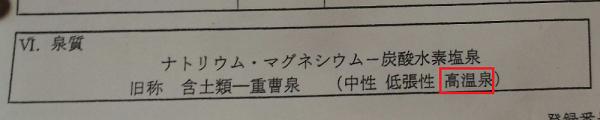 Ⅵ. 泉質
ナトリウム・マグネシウムー炭酸水素塩泉
旧称 含土類一重曹泉 (中性 低張性 高温泉)
登録番